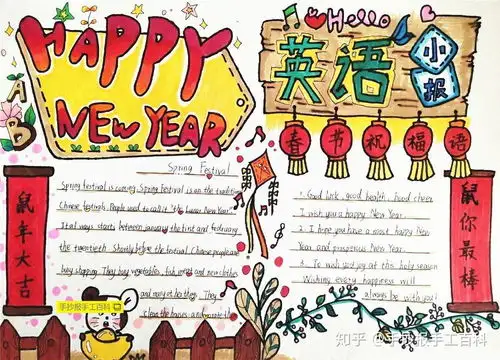 HAPPY
NEW YEAR
Hello
英语
小报
春节祝福语
A
B
Spring Festival
Spring festival is coming. Spring Festival is on the tradition
Chinese festivals. People used to call it "the Lunar New Year".
It always starts between january the first and february
the twentieth. Shortly before the festival. Chinese people are
busy shopping. They buy vegetables, fish, meat and new clothes
and many other things. They
clean the houses and
1. Good luck, good health, good cheer
I wish you a happy New Year.
2. I hope you have a most happy New
Year and prosperous New Year.
3. To wish you joy at this holy season
Wishing every happiness will
always be with you!
鼠年大吉
鼠你最棒
手抄报手工百科
知乎 @手抄报手工百科